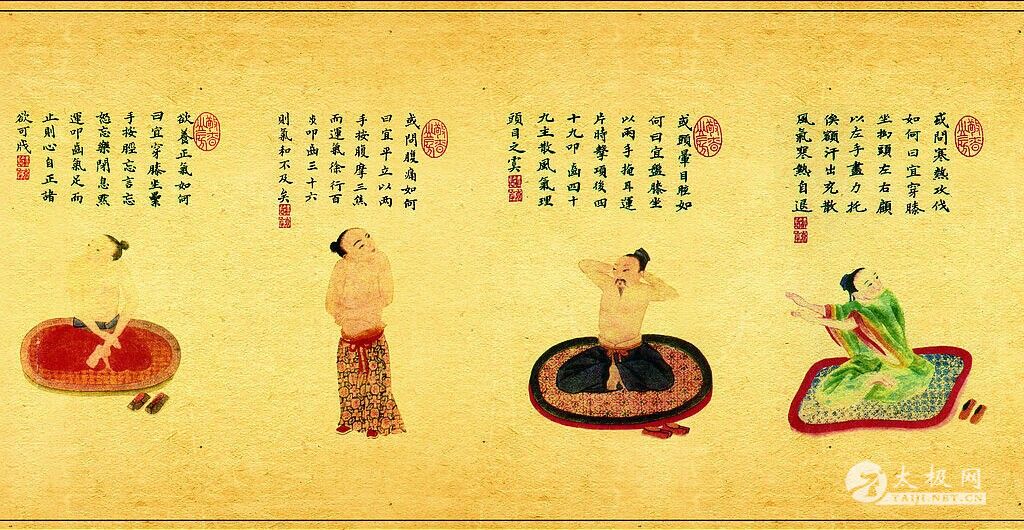 或問寒熱攻伐
如何曰宜穿膝
坐拗頭左右顧
以左手盡力托
俟額汗出充散
風氣寒熱自退
或頭暈目眩如
何曰宜盤膝坐
以兩手掩耳運
片時擊項後四
十九叩齒四十
九主散風氣理
頭目之
或問腹痛如何
曰宜平立以兩
手按腹摩三焦
而運氣徐行百
叩齒三十六
則氣和不及矣
欲養正氣如何
曰宜穿膝坐疊
手按脛忘言忘
怒忘樂閉息默
運叩齒氣足而
止則心自正諸
欲可
太极网
TAIJI.NET.CN